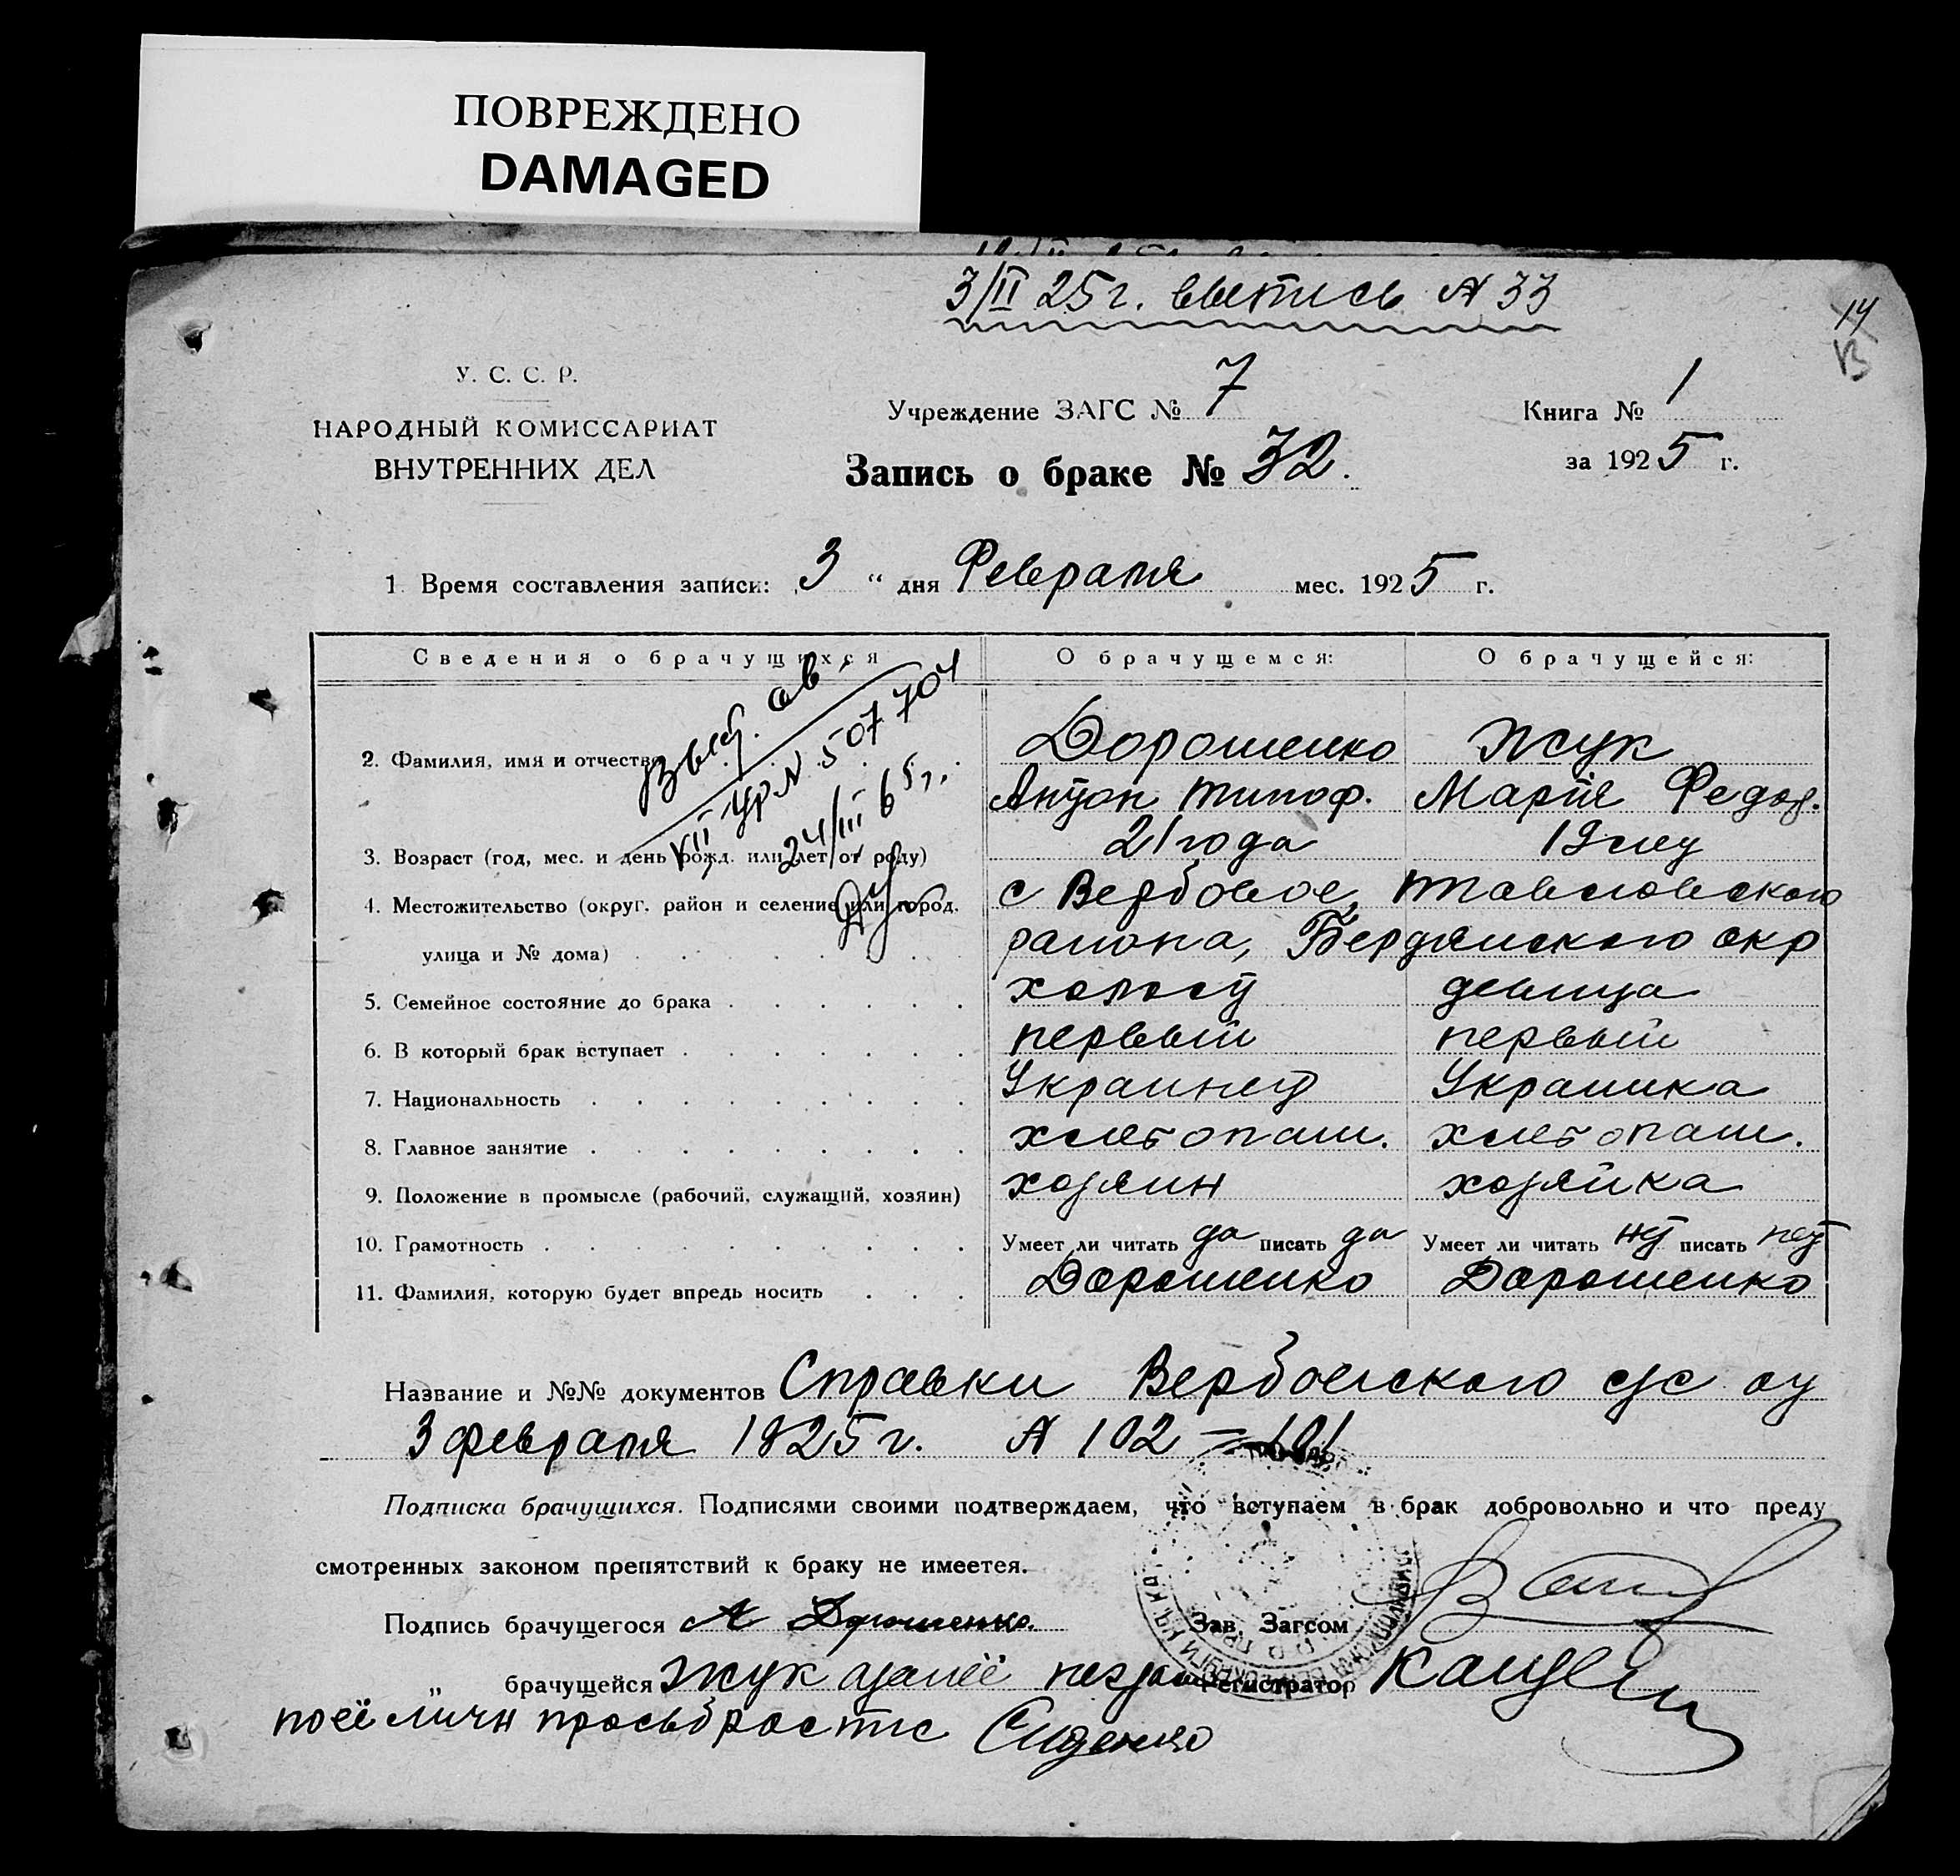 ПОВРЕЖДЕНО
DAMAGED
3/II 25 г. выпись № 33
14
13
У. С. С. Р.
НАРОДНЫЙ КОМИССАРИАТ
ВНУТРЕННИХ ДЕЛ
Учреждение ЗАГС № 7
Запись о браке № 32.
Книга № 1
за 1925 г.
1. Время составления записи: 3 " дня Февраля мес. 1925 г.
Сведения о брачущихся О брачущемся: О брачущейся:
Выд. св.
VII УР № 507704
24/III 65 г.
2. Фамилия, имя и отчество Дорошенко Жук
Антон Тимоф. Мария Федор.
3. Возраст (год, мес. и день рожд. или лет от роду) 21 года 19 лет
4. Местожительство (округ. район и селение или город. с Вербовое,
улица и № дома) района, Бердянского окр
5. Семейное состояние до брака холост девица
6. В который брак вступает первый первый
7. Национальность Украинец Украинка
8. Главное занятие хлебопаш. хлебопаш.
9. Положение в промысле (рабочий, служащий, хозяин) хозяин хозяйка
10. Грамотность Умеет ли читать да писать да Умеет ли читать нет писать нет
11. Фамилия, которую будет впредь носить Дорошенко Дорошенко
Название и №№ документов Справки Вербовского с/с от
3 февраля 1925 г. № 102 = 101
Подписка брачущихся. Подписями своими подтверждаем, что вступаем в брак добровольно и что преду
смотренных законом препятствий к браку не имеется.
Подпись брачущегося А Дорошенко. Зав. Загсом
„ брачущейся Жук Регистратор
по её личн просьб распис